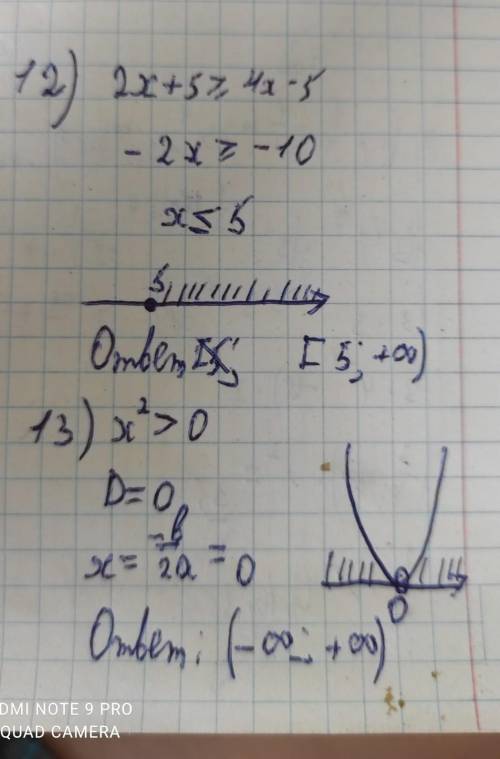 12) 2x+5≥4x-5
-2x≥-10
x≤5
5
Ответ [5; +∞)
13) x²>0
D=0
x=-b/2a=0
0
Ответ: (-∞; +∞)
DMI NOTE 9 PRO
QUAD CAMERA